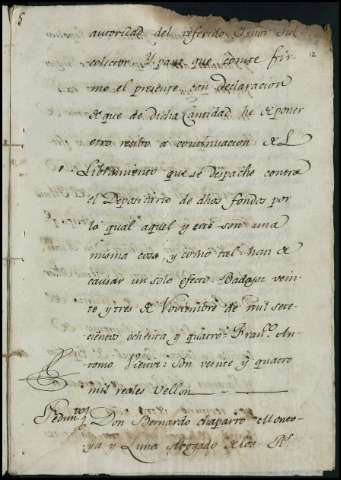 autoridad del referido Señor Sub
colector. Y para que conste fir
mo el presente, con declaracion
de que de dicha Cantidad he de poner
otro recibo a continuacion del
Libramiento que se despache contra
el Depositario de dhos fondos por
lo qual aquel y este son una
misma cosa y como tal han de
causar un solo efecto. Badajoz vein
te y tres de Noviembre de mil sete
cientos ochenta y quatro = Fran.co An
tonio = Son veinte y quatro
mil reales Vellon
Don Bernardo Chaparro Monto
ya y Luna Abogado de los Rs
12